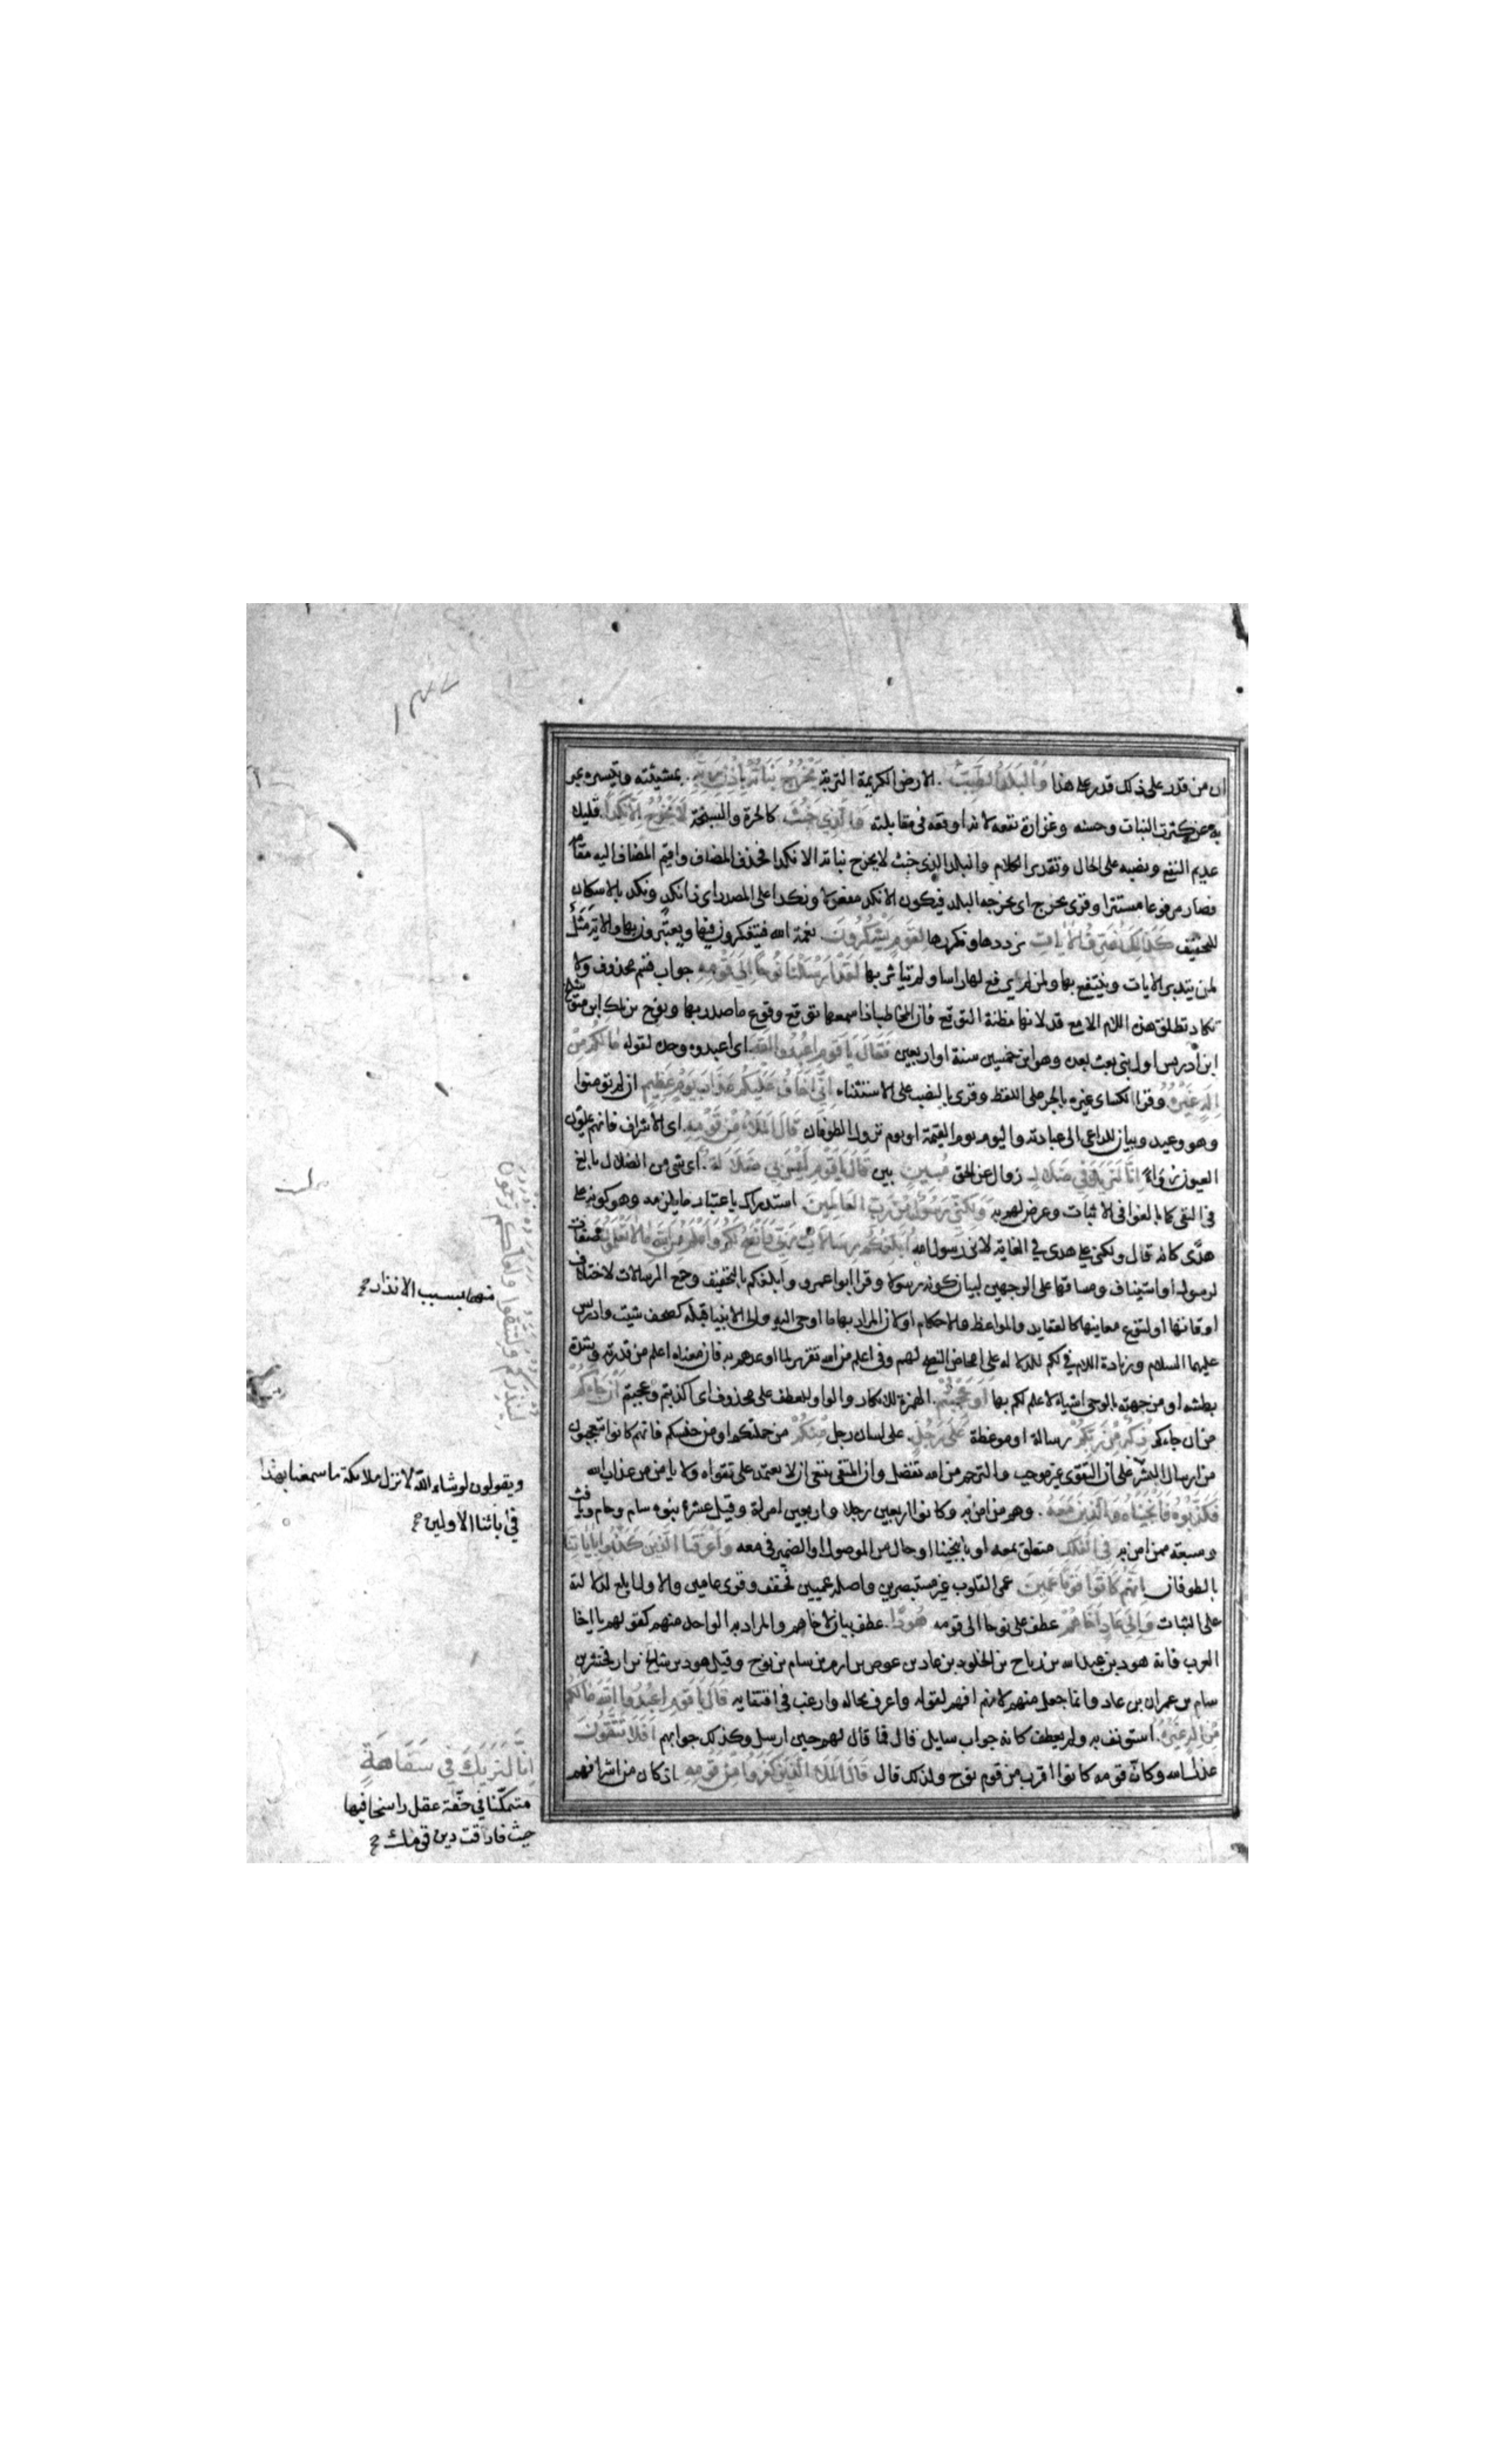 ١٣٢
ان من قدر على ذلك قدر على هذا وَالْبَلَدُ الطَّيِّبُ الارض الكريمة التربة يَخْرُجُ نَبَاتُهُ بِإِذْنِ رَبِّهِ بمشيئته وتيسيره عبر
به عن كثرة النبات وحسنه وغزارة نفعه لانه اوقعه فى مقابلته وَالَّذِي خَبُثَ كالحرة والسبخة لَا يَخْرُجُ إِلَّا نَكِدًا قليلا
عديم النفع ونصبه على الحال وتقدير الكلام والبلد الذى خبث لا يخرج نباته الا نكدا فحذف المضاف واقيم المضاف اليه مقامه
فصار مرفوعا مستترا وقرئ يخرج اى يخرجه البلد فيكون الا نكدا مفعولا ونكدا على المصدر اى ذا نكد ونكد بالاسكان
للتخفيف كَذَلِكَ نُصَرِّفُ الْآيَاتِ نرددها ونكررها لِقَوْمٍ يَشْكُرُونَ نعمة الله فيتفكرون فيها ويعتبرون بها والاية مثل
لمن يتدبر الايات وينتفع بها ولمن لم يرفع لها راسا ولم يتاثر بها لَقَدْ أَرْسَلْنَا نُوحًا إِلَى قَوْمِهِ جواب قسم محذوف ولا
تكاد تطلق هذه اللام الا مع قد لانها مظنة التوقع فان المخاطب اذا سمعها توقع وقوع ما صدر بها ونوح بن ملك ابن متوشلح
ابن ادريس اول نبى بعث بعده وهو ابن خمسين سنة او اربعين فَقَالَ يَا قَوْمِ اعْبُدُوا اللَّهَ اى اعبدوه وحده لقوله مَا لَكُمْ مِنْ
إِلَهٍ غَيْرُهُ وقرا الكسائى غيره بالجر على اللفظ وقرئ بالنصب على الاستثناء إِنِّي أَخَافُ عَلَيْكُمْ عَذَابَ يَوْمٍ عَظِيمٍ ان لم تومنوا
وهو وعيد وبيان للداعى الى عبادته واليوم يوم القيمة او يوم نزول الطوفان قَالَ الْمَلَأُ مِنْ قَوْمِهِ اى الاشراف فانهم يملئون
العيون رواء إِنَّا لَنَرَاكَ فِي ضَلَالٍ زوال عن الحق مُبِينٍ بين قَالَ يَا قَوْمِ لَيْسَ بِي ضَلَالَةٌ اى شى من الضلال بالغ
فى النفى كما بالغوا فى الاثبات وعرض لهم به وَلَكِنِّي رَسُولٌ مِنْ رَبِّ الْعَالَمِينَ استدراك باعتبار ما يلزمه وهو كونه على
هدى كانه قال ولكنى على هدى فى الغاية لانى رسول الله أُبَلِّغُكُمْ رِسَالَاتِ رَبِّي وَأَنْصَحُ لَكُمْ وَأَعْلَمُ مِنَ اللَّهِ مَا لَا تَعْلَمُونَ صفات
لرسول او استيناف ومساقها على الوجهين لبيان كونه رسولا وقرا ابوا عمرو وابلغكم بالتخفيف وجمع الرسالات لاختلاف
اوقاتها او لتنوع معانيها كالعقايد والمواعظ والاحكام او لان المراد بها ما اوحى اليه والى الانبياء قبله كصحف شيث وادريس
عليهما السلام وزيادة اللام فى لكم للدلالة على امحاض النصح لهم وفى اعلم من الله تقرير لما اوعدهم به فان معناه اعلم من قدرته وشدة
بطشه او من جهته بالوحى اشياء لا علم لكم بها أَوَعَجِبْتُمْ الهمزة للانكار والواو للعطف على محذوف اى اكذبتم وعجبتم أَنْ جَاءَكُمْ
من ان جاءكم ذِكْرٌ مِنْ رَبِّكُمْ رسالة او موعظة عَلَى رَجُلٍ على لسان رجل مِنْكُمْ من جملتكم او من جنسكم فانهم كانوا يتعجبون
من ارسال البشر على ان التقوى غير موجب والترحم من الله تفضل وان المتقى ينبغى ان لا يعتمد على تقواه ولا يامن من عذاب الله
فَكَذَّبُوهُ فَأَنْجَيْنَاهُ وَالَّذِينَ مَعَهُ وهم من امن به وكانوا اربعين رجلا واربعين امراة وقيل عشرة بنوه سام وحام ويافث
وسبعة ممن امن به فِي الْفُلْكِ متعلق بمعه او بانجينا او حال من الموصول او الضمير فى معه وَأَغْرَقْنَا الَّذِينَ كَذَّبُوا بِآيَاتِنَا
بالطوفان إِنَّهُمْ كَانُوا قَوْمًا عَمِينَ عمى القلوب غير مستبصرين واصله عميين فخفف وقرى عامين والاول ابلغ لدلالته
على الثبات وَإِلَى عَادٍ أَخَاهُمْ عطف على نوحا الى قومه هُودًا عطف بيان لاخاهم والمراد به الواحد منهم كقولهم يا اخا
العرب فانه هود بن عبد الله بن رباح بن الخلود بن عاد بن عوص بن ارم بن سام بن نوح وقيل هود بن شالخ بن ارفخشد بن
سام بن عمران بن عاد وانما جعل منهم لانهم افهم لقوله واعرف بحاله وارغب فى اقتفايه قَالَ يَا قَوْمِ اعْبُدُوا اللَّهَ مَا لَكُمْ
مِنْ إِلَهٍ غَيْرُهُ استونف به ولم يعطف كانه جواب سايل قال فما قال لهم حين ارسل وكذلك جوابهم أَفَلَا تَتَّقُونَ
عذاب الله وكان قومه كانوا اقرب من قوم نوح ولذلك قال قَالَ الْمَلَأُ الَّذِينَ كَفَرُوا مِنْ قَوْمِهِ اذ كان من اشرافهم
لِيُنْذِرَكُمْ وَلِتَتَّقُوا وَلَعَلَّكُمْ تُرْحَمُونَ
منهما بسبب الانذار صح
ويقولون لو شاء الله لانزل ملائكة ما سمعنا بهذا
فى ابائنا الاولين صح
إِنَّا لَنَرَاكَ فِي سَفَاهَةٍ
متمكنا فى خفة عقل راسخا فيها
حيث فارقت دين قومك صح